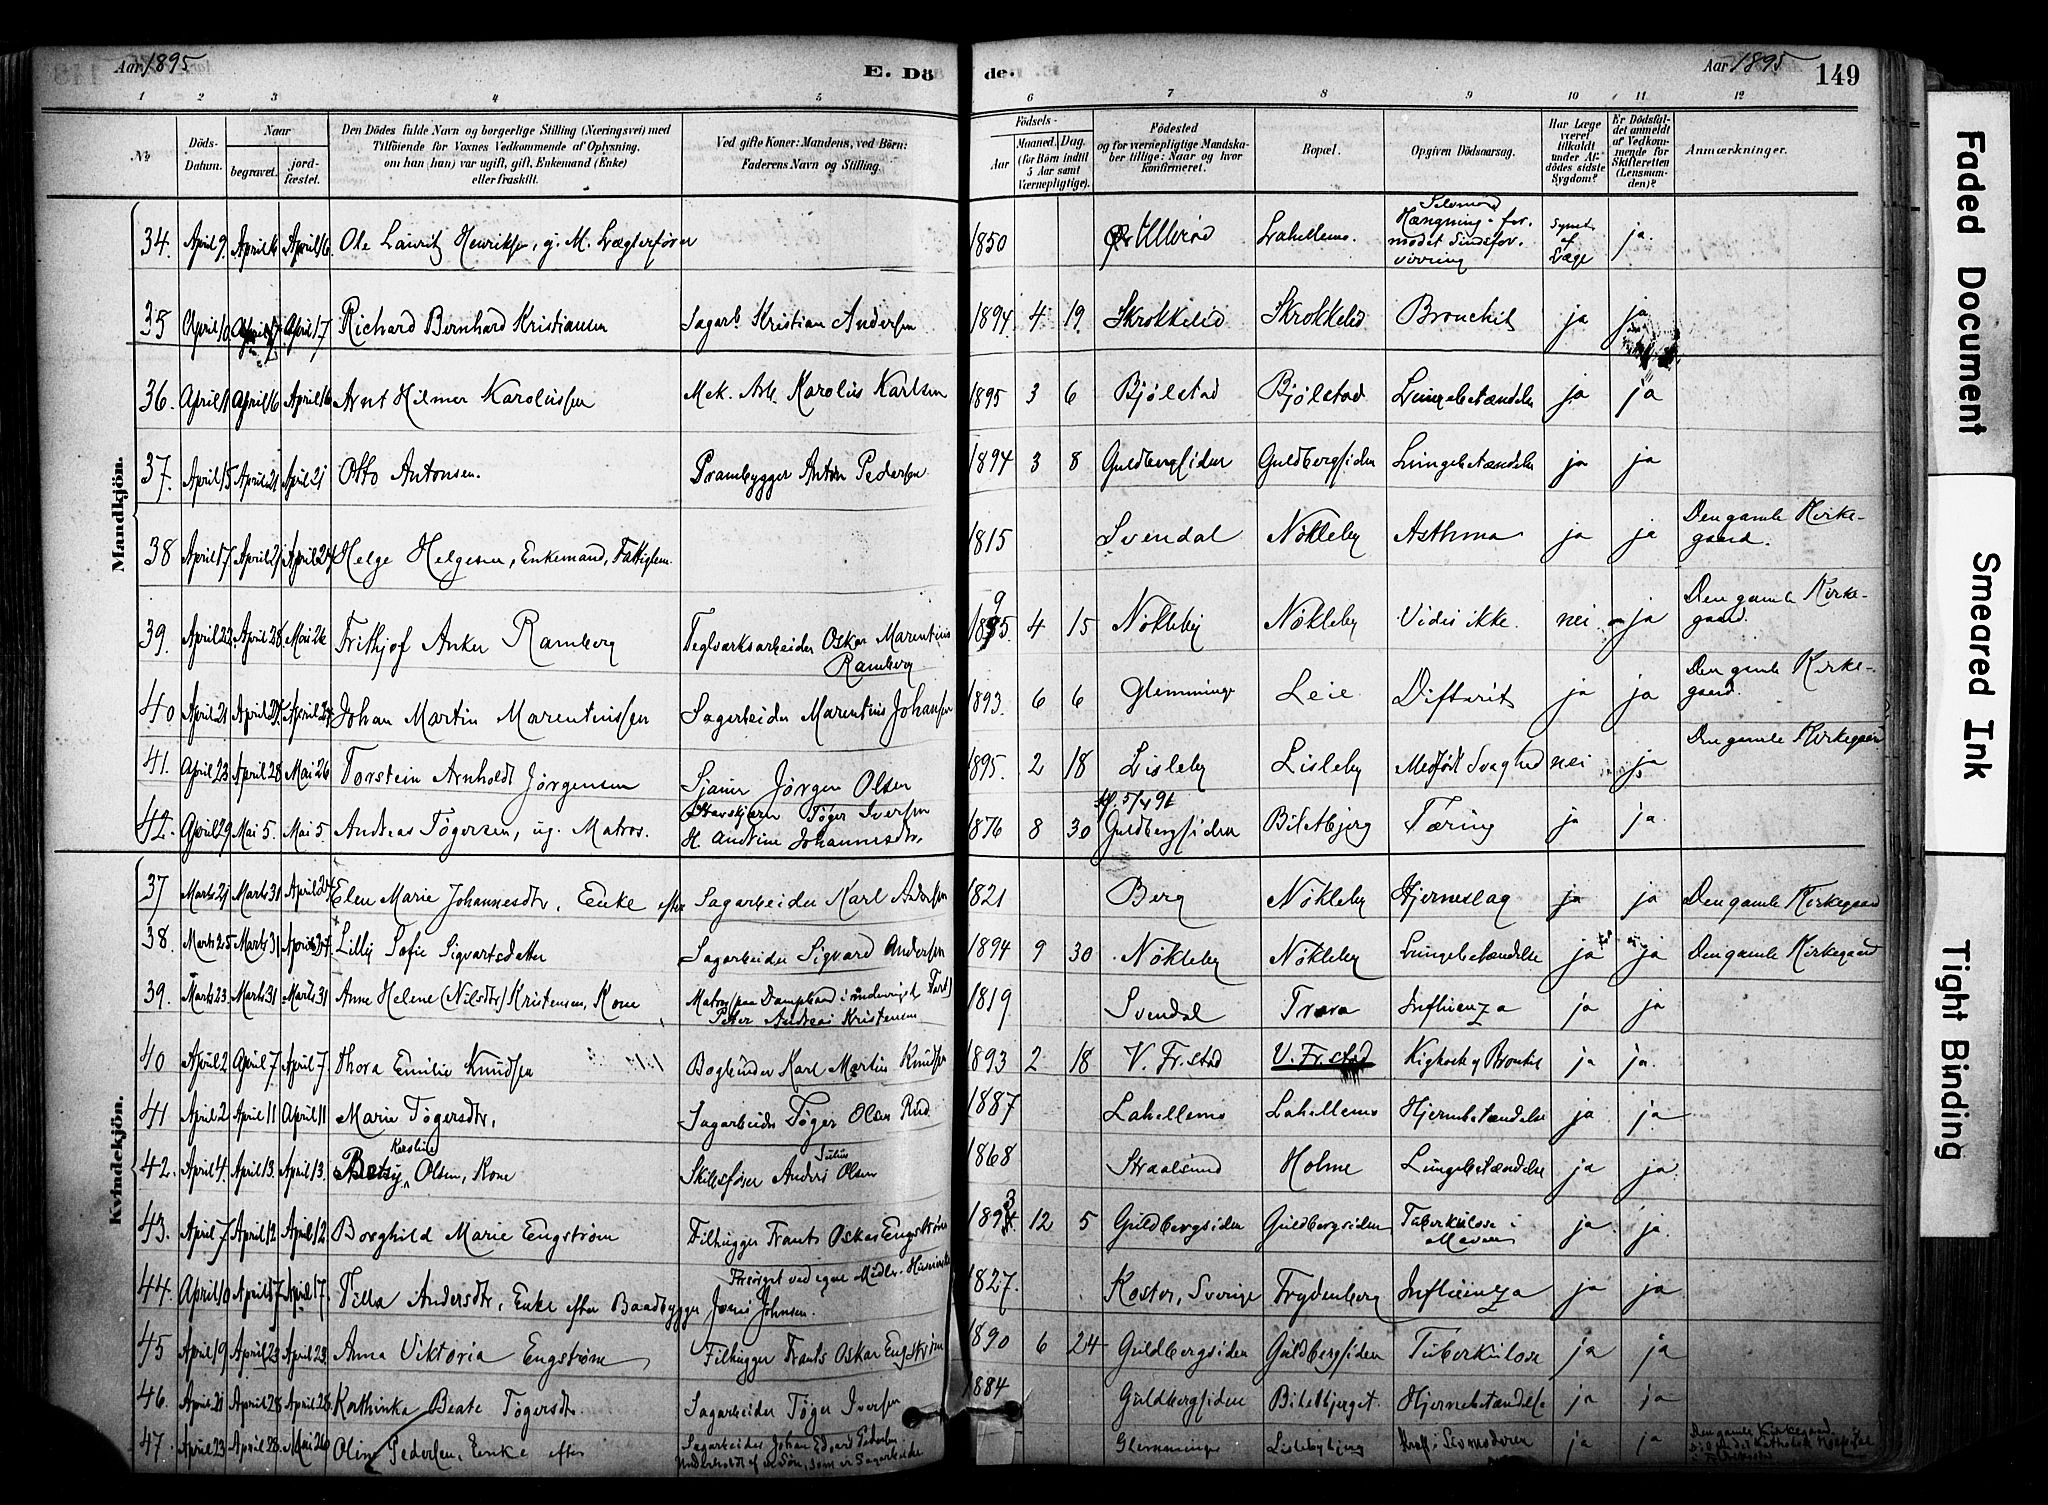 Aar 1895 E. Dö de. Aar 1895 149
1 2 3 4 5 6 7 8 9 10 11 12
No Döds-Datum. Naar begravet. jordfæstet. Den Dödes fulde Navn og borgerlige Stilling (Næringsvei) med Tilföiende for Voxnes Vedkommende af Oplysning, om han (hun) var ugift, gift, Enkemand (Enke) eller fraskilt. Ved gifte Koner: Mandens, ved Börn: Faderens Navn og Stilling. Födsels- Aar Maaned, Dag. (for Börn indtil 5 Aar samt Værnepligtige). Födested og for værnepligtige Mandskaber tillige: Naar og hvor konfirmeret. Bopæl. Opgiven Dödsaarsag. Har Læge været tilkaldt under Afdödes sidste Sygdom? Er Dödsfaldet anmeldt af Vedkommende for Skifteretten (Lensmanden)? Anmærkninger.
Mandkjön.
34. April 9. April 16 April 16. Ole Lauritz Henriksen, g. M. Lægterfører 1850 Ullerød Lahellemo. Selvmord Hængning i formodet Sindsforvirring Synet af Læge ja.
35 April 10 April 17 April 17 Richard Bernhard Kristiansen Sagarb. Kristian Andersen 1894. 4 19. Skrokkelid Skrokkelid Bronchit ja ja
36. April 11 April 16 April 16 Arnt Hilmer Karolussen Mek. Arb. Karolus Karlsen 1895 3 6 Bjølstad Bjølstad Lungebetændelse ja ja
37. April 15 April 21 April 21 Otto Antonsen. Prambygger Anton Pedersen 1894 3 8 Guldbergsiden Guldbergsiden Lungebetændelse ja ja
38 April 17 April 21 April 24 Helge Helgesen, Enkemand, Fattiglem. 1815 Svendal Nökleby Asthma ja ja Den gamle Kirkegaard.
39. April 22. April 28. Mai 26 Frithjof Anker Ramberg Teglværksarbeider Oskar Marentius Ramberg 1895. 4 15 Nökleby Nökleby Vides ikke. nei ja Den gamle Kirkegaard.
40 April 21 April 27 April 27 Johan Martin Marentiussen Sagarbeider Marentius Johansen 1893. 6 6 Glemminge Leie Difterit ja ja Den gamle Kirkegaard.
41. April 23 April 28 Mai 26 Torstein Arnholdt Jørgensen Sjauer Jørgen Olsen 1895. 2 18 Lisleby Lisleby Medfödt Svaghed nei ja Den gamle Kirkegaard
42. April 29 Mai 5. Mai 5. Andreas Tögersen, ug. Matros. Töger Iversen H. Andtine Johannesdtr. 1876 8 30 Guldbergsiden Biletbjerg Tæring ja ja.
Kvindekjön.
37 Marts 21 Marts 31 April 24 Elen Marie Johannesdtr, Enke efter Sagarbeider Karl Andersen 1821 Berg Nökleby Hjerneslag ja ja Den gamle Kirkegaard
38. Marts 25 Marts 31 Lilly Sofie Sigvartsdatter Sagarbeider Sigvard Andersen 1894 9 30 Nökleby Nökleby Lungebetændelse ja ja Den gamle Kirkegaard
39. Marts 23. Marts 31 Marts 31 Anne Helene (Nilsdtr) Kristensen, Kone Matros (paa Dampbaad i indenrigsk Fart) Peter Andreas Kristensen 1819 Svendal Trara Influenza ja ja
40 April 2 April 7 April 7 Thora Emilie Knudsen Bogbinder Karl Martin Knudsen 1893 2 18 V. Fr.stad V. Fr.stad Kighoste og ja ja.
41 April 2 April 11 April 11 Marie Tögersdtr, Sagarbeider Töger Olsen Rud 1887 Lahellemo Lahellemo Hjernebetændelse ja ja
42. April 4. April 13. April 13. Betsy Karoline Olsen, Kone Anders Julius Olsen 1868 Straalsund Holme Lungebetændelse ja ja
43. April 7 April 12 April 12. Borghild Marie Engström Filhugger Frants Oskar Engström 1893 12 5 Guldbergsiden Guldbergsiden Tuberkulose i Maven ja ja.
44. April 10 April 17 April 17. Tilla Andersdtr, Enke efter Baadbygger Jonas Johnsen. Forsørget ved egne Midler. 1827. Koster, Sverige Frydenberg Influenza ja ja
45 April 19 April 23 April 23. Anna Viktoria Engström Filhugger Frants Oskar Engström 1890 6 24 Guldbergsiden Guldbergsiden Tuberkulose ja ja
46. April 21 April 28 April 28. Kathinka Beate Tögersdtr. Sagarbeider Töger Iversen 1884 Guldbergsiden Biletbjerget. Hjernebetændelse ja ja
47. April 23 April 28. Mai 26 Oline Pedersen, Enke efter Sagarbeider Johan Edvard Pedersen Underholdt af en Søn, som er Sagarbeider Glemminge Lislebybjerg Kræft i Livmoderen ja ja Den gamle Kirkegaard.
Faded Document
Smeared Ink
Tight Binding